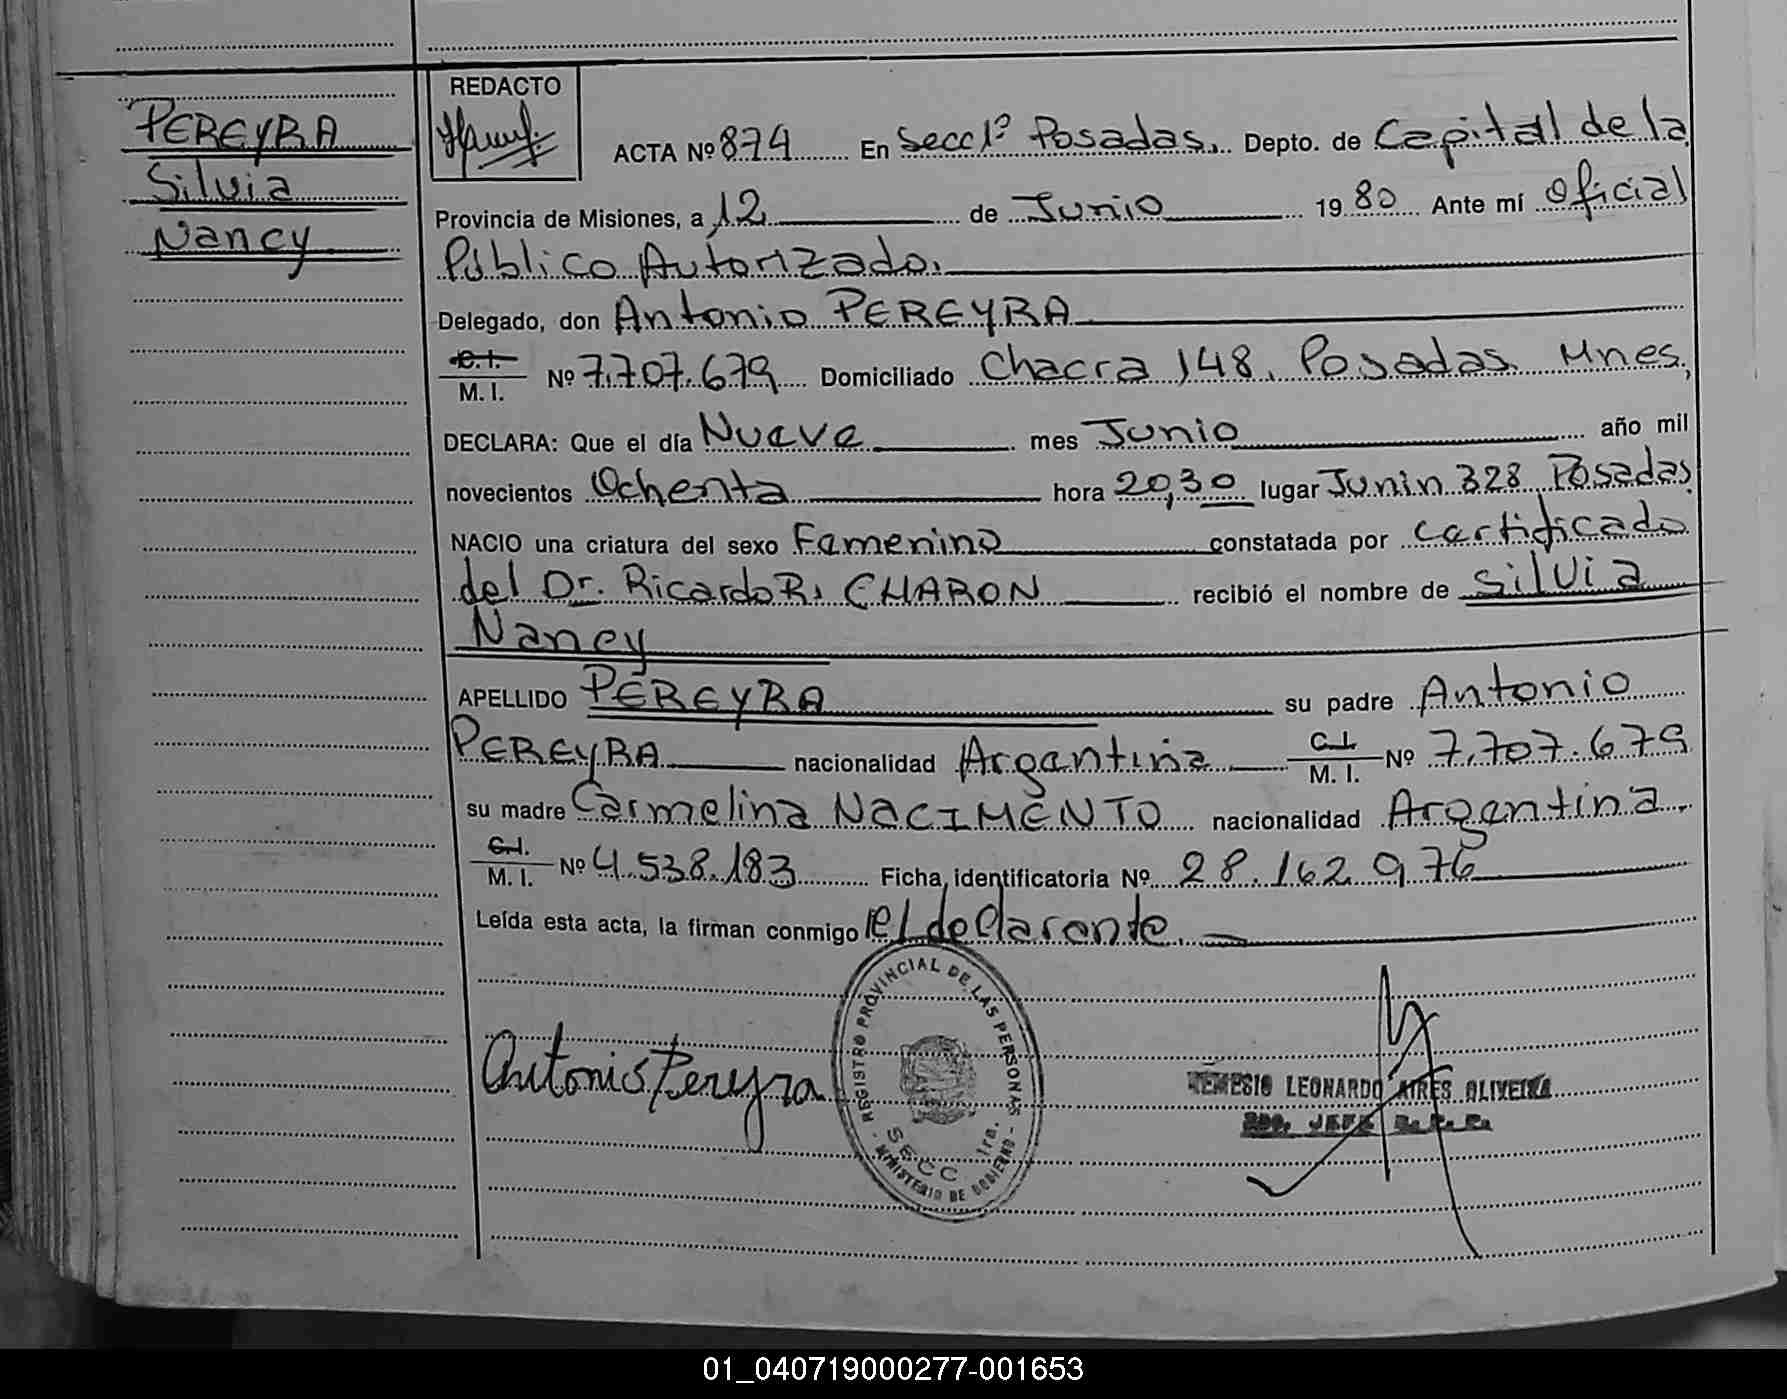 PEREYRA
Silvia
Nancy
REDACTO
ACTA Nº 874 En Secc 1ª Posadas, Depto. de Capital de la
Provincia de Misiones, a 12 de Junio 19 80 Ante mí Oficial
Público Autorizado.
Delegado, don Antonio PEREYRA
C.I.
M. I. Nº 7.707.679 Domiciliado Chacra 148, Posadas Mnes,
DECLARA: Que el día Nueve mes Junio año mil
novecientos Ochenta hora 20,30 lugar Junin 328 Posadas
NACIO una criatura del sexo Femenino constatada por certificado
del Dr. Ricardo R. CHARON recibió el nombre de Silvia
Nancy
APELLIDO PEREYRA su padre Antonio
PEREYRA nacionalidad Argentina C.I. M. I. Nº 7.707.679
su madre Carmelina NACIMENTO nacionalidad Argentina
C.I.
M. I. Nº 4.538.183 Ficha identificatoria Nº 28.162.976
Leída esta acta, la firman conmigo el declarante
Antonio Pereyra
REGISTRO PROVINCIAL DE LAS PERSONAS
SECC 1ra.
- MINISTERIO DE GOBIERNO -
NEMESIO LEONARDO AIRES OLIVEIRA
JEFE R.P.P.
01_040719000277-001653